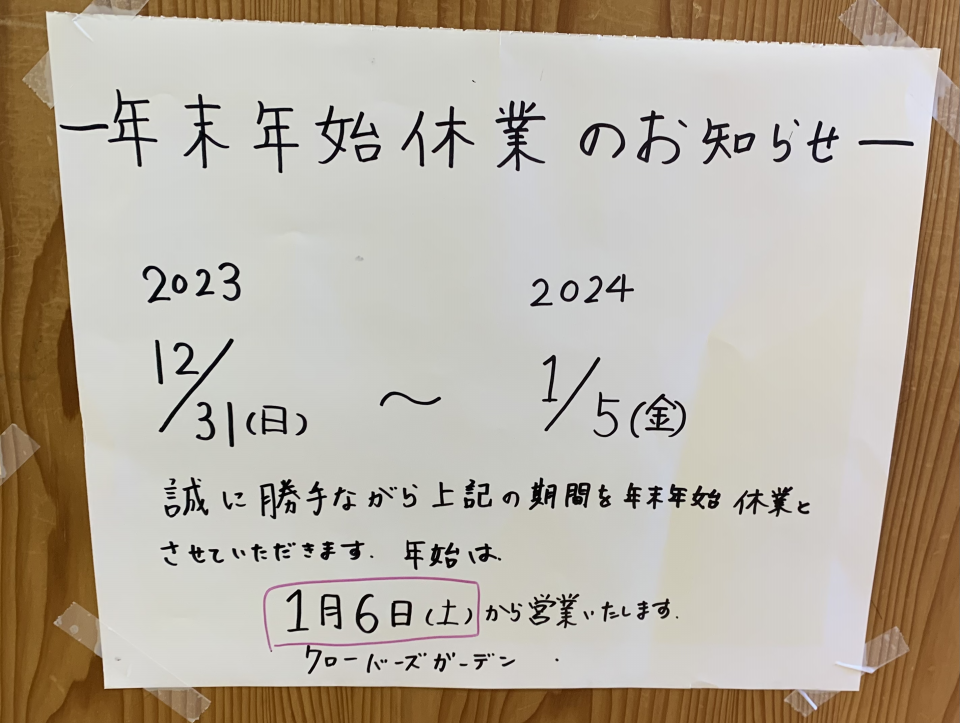 ー年末年始休業のお知らせー
2023 2024
12/31(日) 〜 1/5(金)
誠に勝手ながら上記の期間を年末年始休業と
させていただきます. 年始は.
1月6日(土)から営業いたします.
クローバーズガーデン